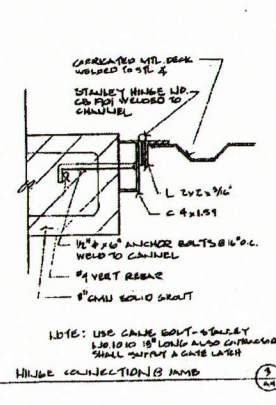 CORRUGATED MTL. DECK
WELDED TO STL
STANLEY HINGE NO.
WELDED TO
CHANNEL
L 2x2x3/16"
C 4x1.59
1/2"ϕ x 6" ANCHOR BOLTS @ 16" O.C.
WELD TO CANNEL
#4 VERT REBAR
8" CMU SOLID GROUT
NOTE: USE CANE BOLT - STANLEY
NO. 1010 18" LONG ALSO CONTRACTOR
SHALL SUPPLY A GATE LATCH
HINGE CONNECTION @ JAMB